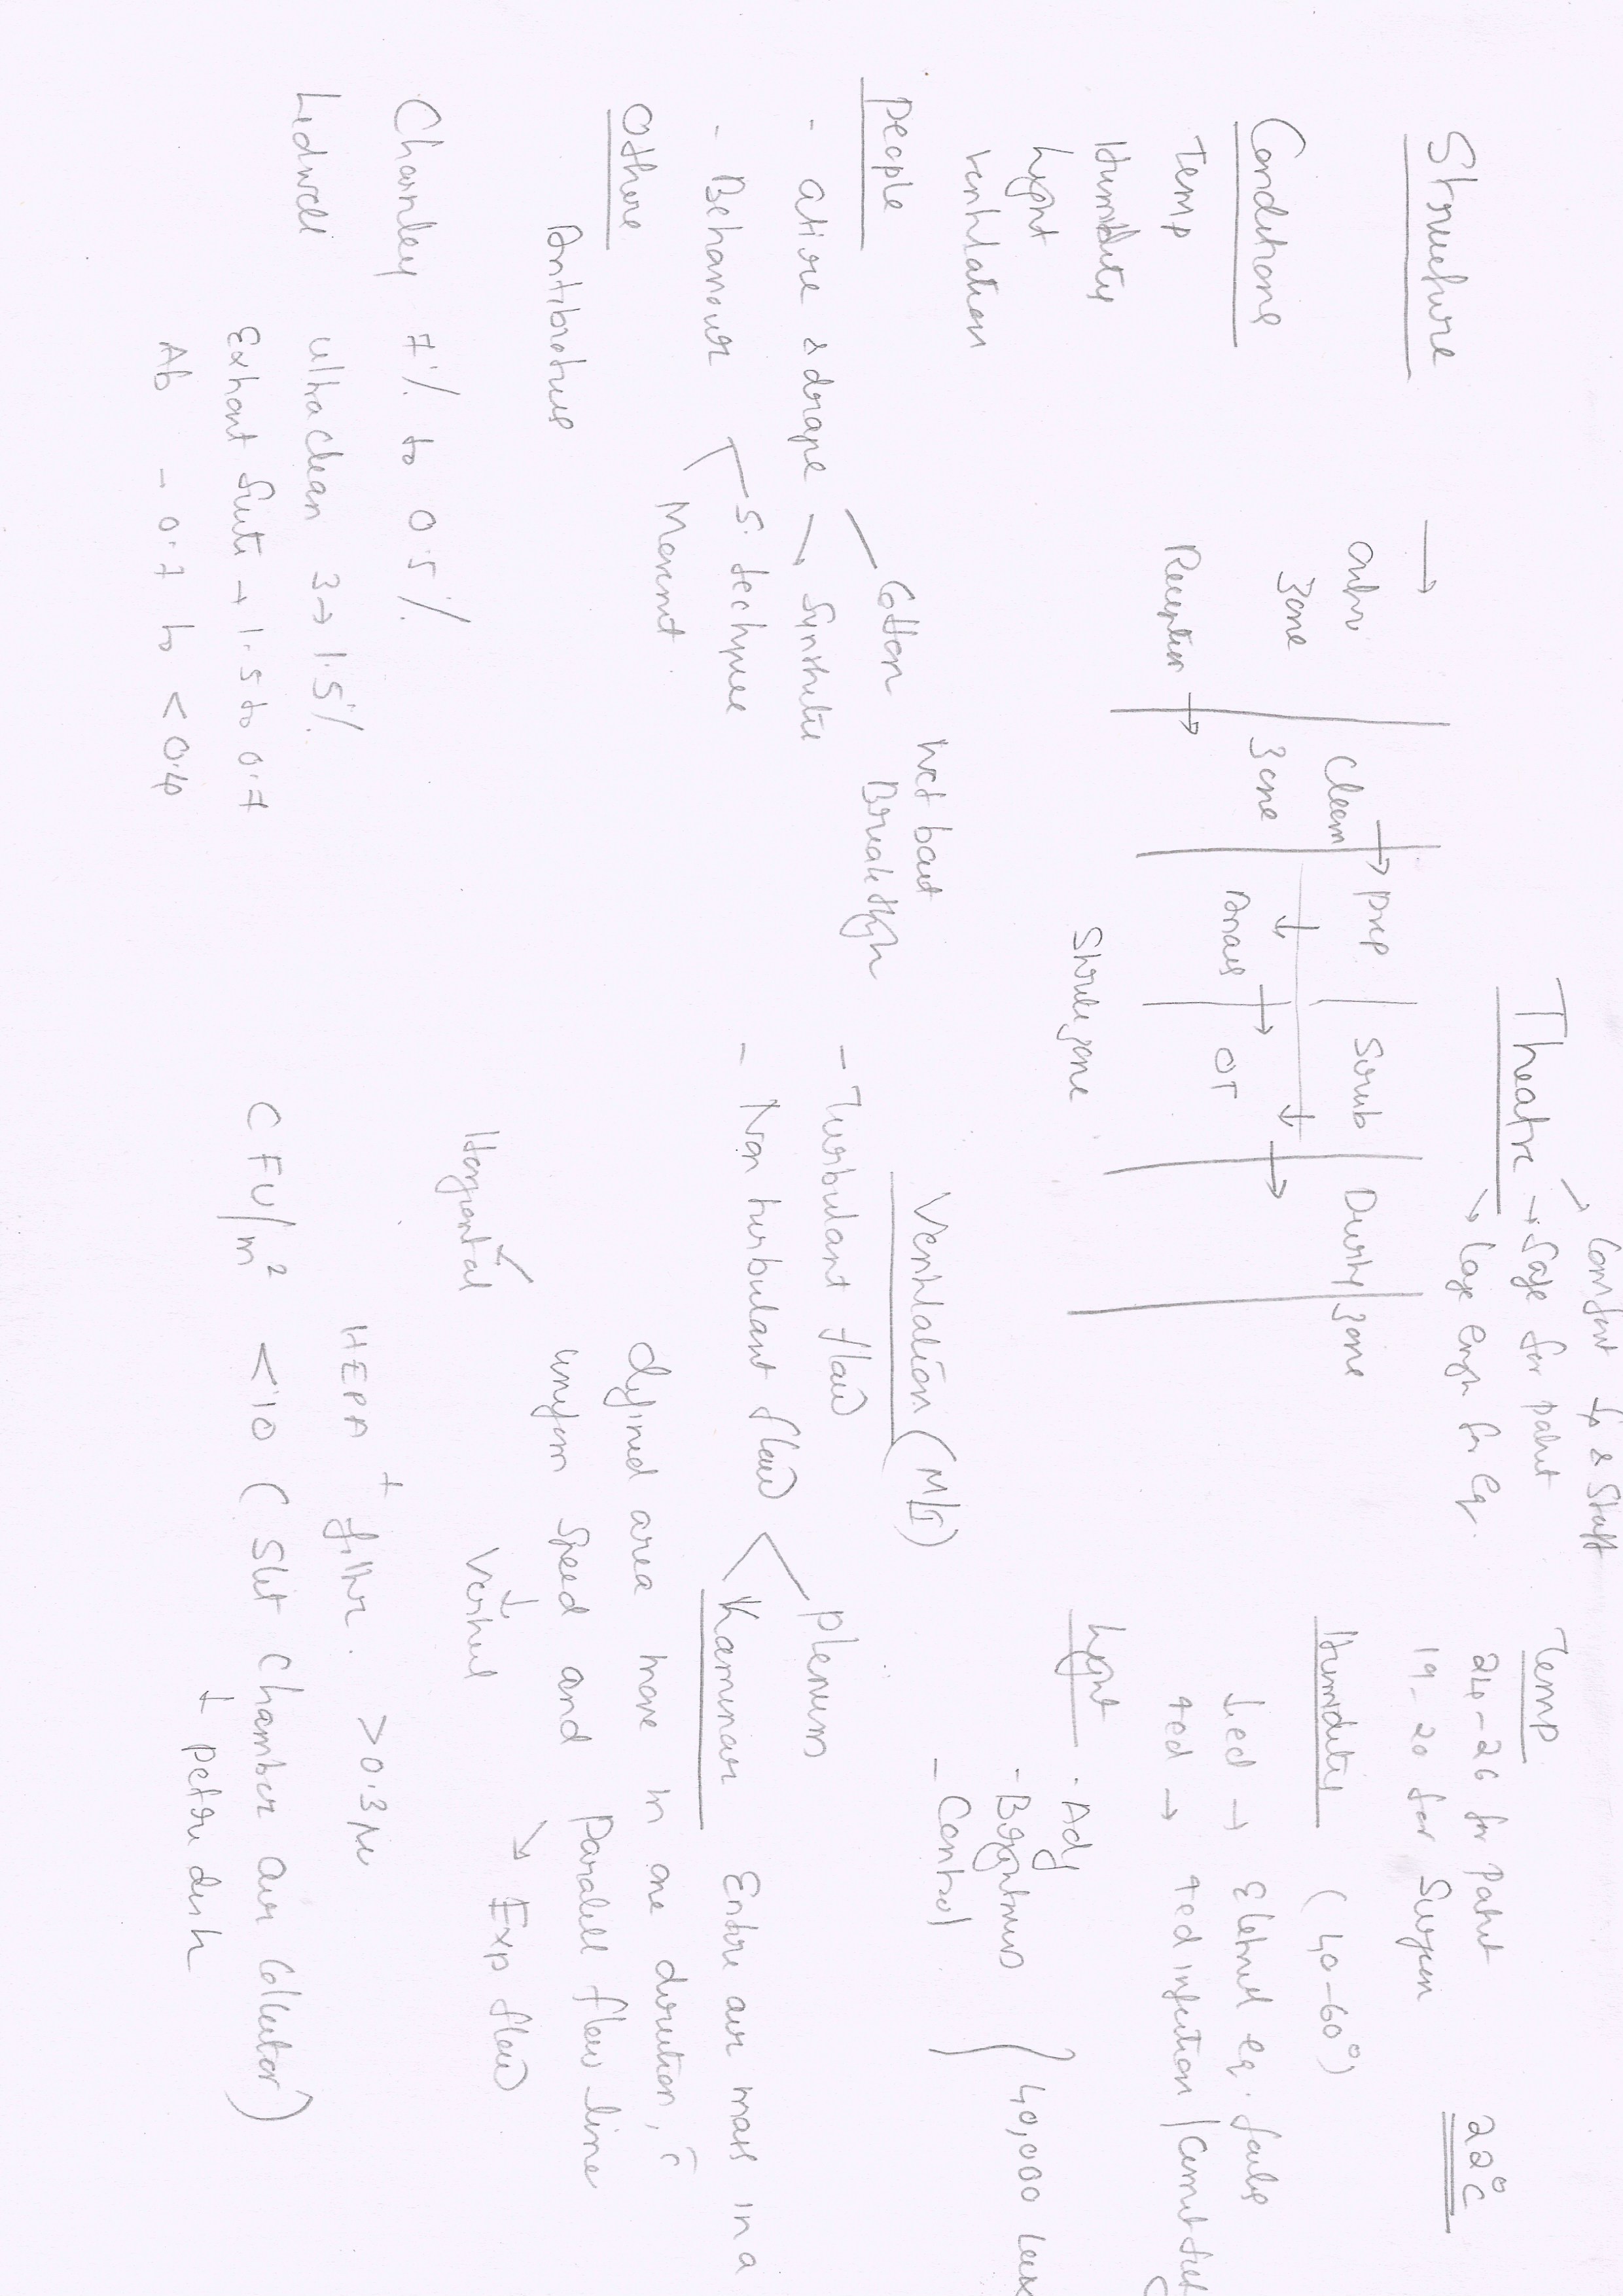 Theatre → Safe for patient
→ Comfort for & Staff
→ Large enough for eq.
Structure →
outer zone
Reception →
Clean zone
Prep
Scrub
Anaes → OT
Sterile zone
Dirty zone
Conditions
Temp
Humidity
Light
Ventilation
People
- atire & drape
Cotton
wet bact
Breakthgh
Synthetic
- Behaviour
S. technique
Movement
Others
Antibiotics
Charnley 7% to 0.5%
Lidwell ultra clean 3 → 1.5%
Exhaust Suite → 1.5 to 0.7
Ab - 0.7 to < 0.4
Temp
24-26 for Patient
19-20 for Surgeon
22°C
Humidity (40-60°)
↓ed → Eletrical eq. fails
↑ed → ↑ed infection /
Light - Adj
- Brightness
- Control
40,000 lux
Ventilation (M/I)
- Turbulant flow
- Non turbulant flow
Plenum
Laminar Entire air mass in a
defined area move in one direction, c̄
uniform speed and parallell flow line
Horizontal
Vertical
Exp flow
HEPA filter. >0.3µ
CFU/m² <10 (Slit chamber air collector)
+ petri dish